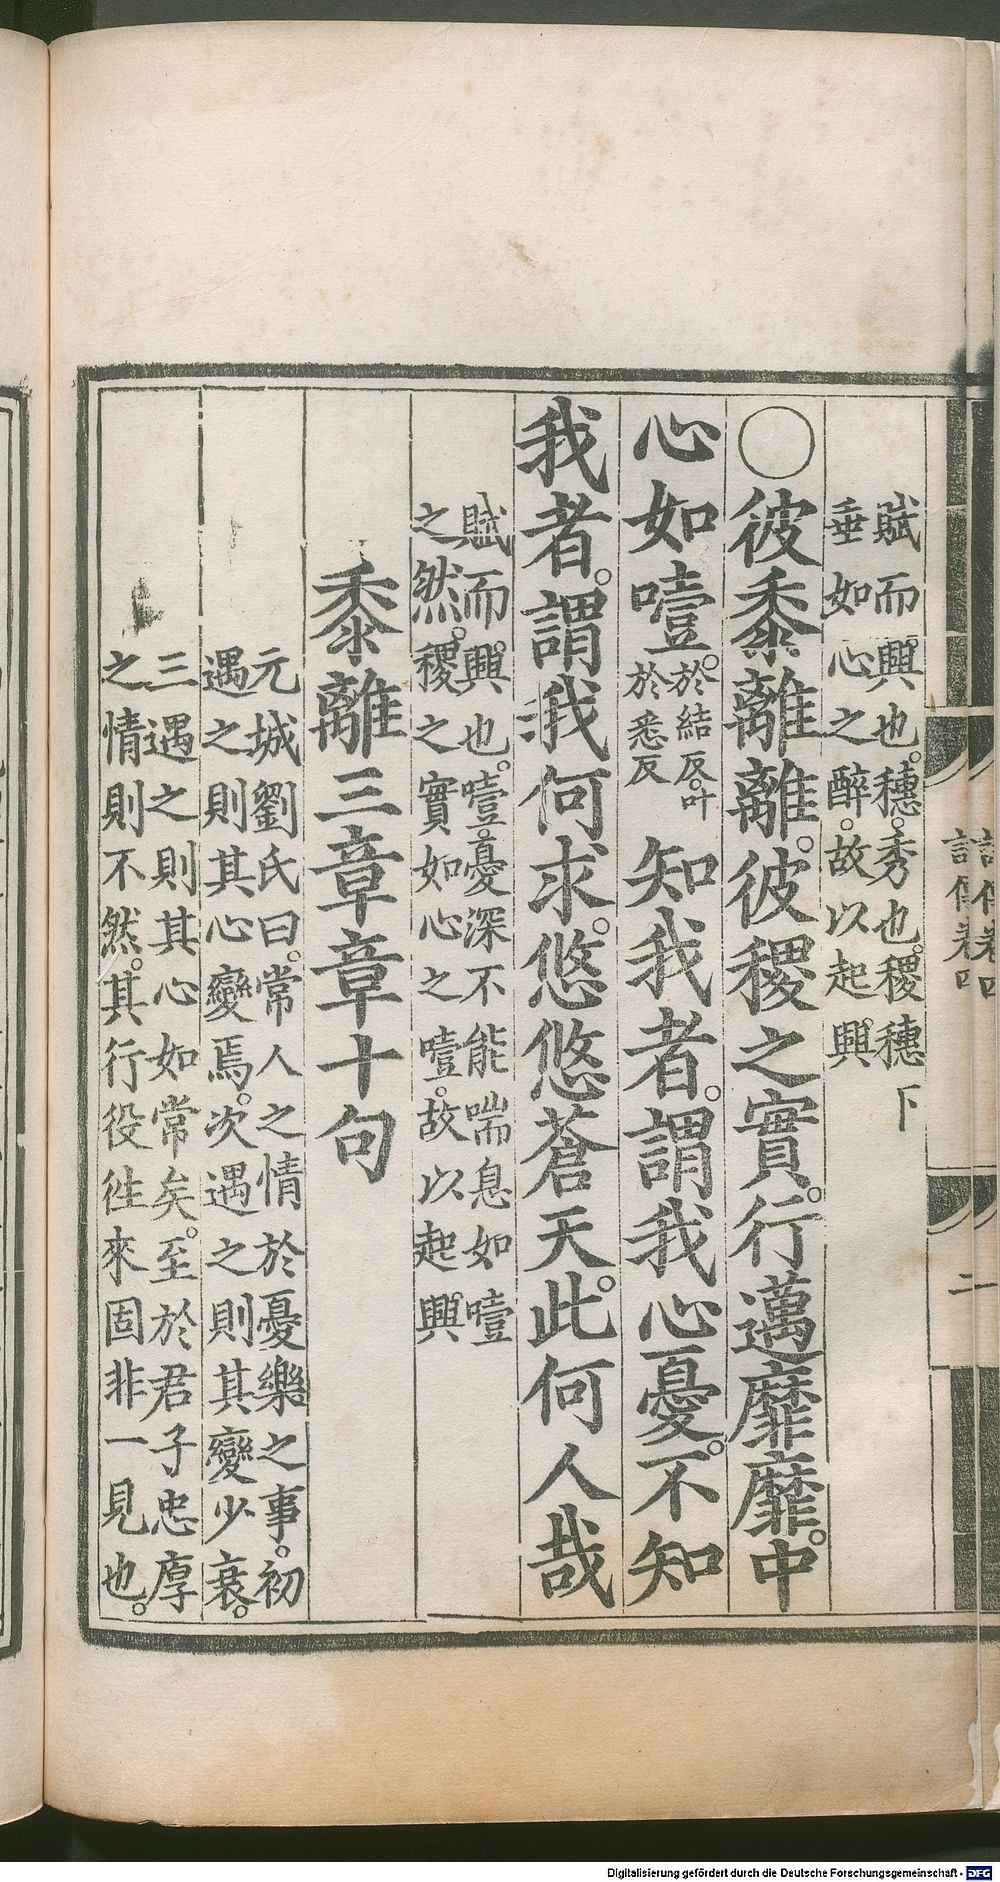 賦而興也。穗。秀也。稷穗下
垂如心之醉。故以起興。
○彼黍離離。彼稷之實。行邁靡靡。中
心如噎。於結反。叶
於悉反
知我者。謂我心憂。不知
我者。謂我何求。悠悠蒼天。此何人哉
賦而興也。噎。憂深不能喘息如噎
之然。稷之實如心之噎。故以起興。
黍離三章章十句
元城劉氏曰。常人之情於憂樂之事。初
遇之則其心變焉。次遇之則其變少衰。
三遇之則其心如常矣。至於君子忠厚
之情則不然。其行役徃來固非一見也。
詩傳卷四
二
Digitalisierung gefördert durch die Deutsche Forschungsgemeinschaft - DFG